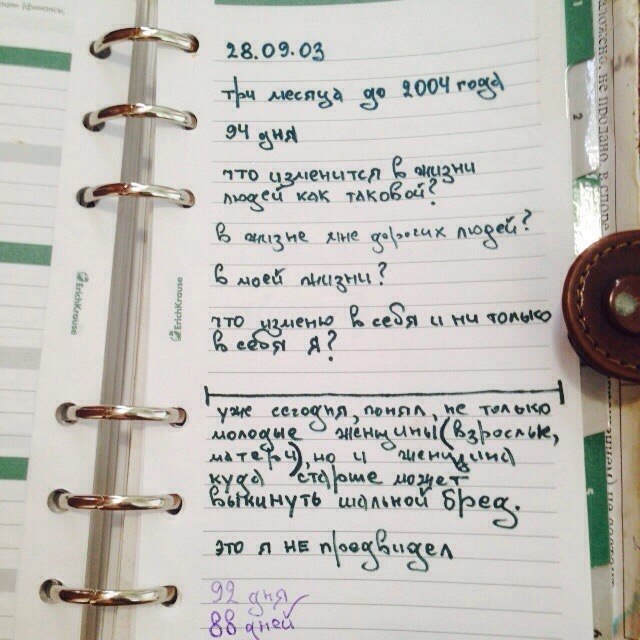 28.09.03
три месяца до 2004 года
94 дня
что изменится в жизни
людей как таковой?
в жизне мне дорогих людей?
в моей жизни?
что изменю в себя и ни только
в себя я?
уже сегодня, понял, не только
молодые женщины (взрослые,
матери), но и женщина
куда старше может
выкинуть шальной бред.
это я не предвидел
92 дня
88 дней
ErichKrause
ErichKrause
2